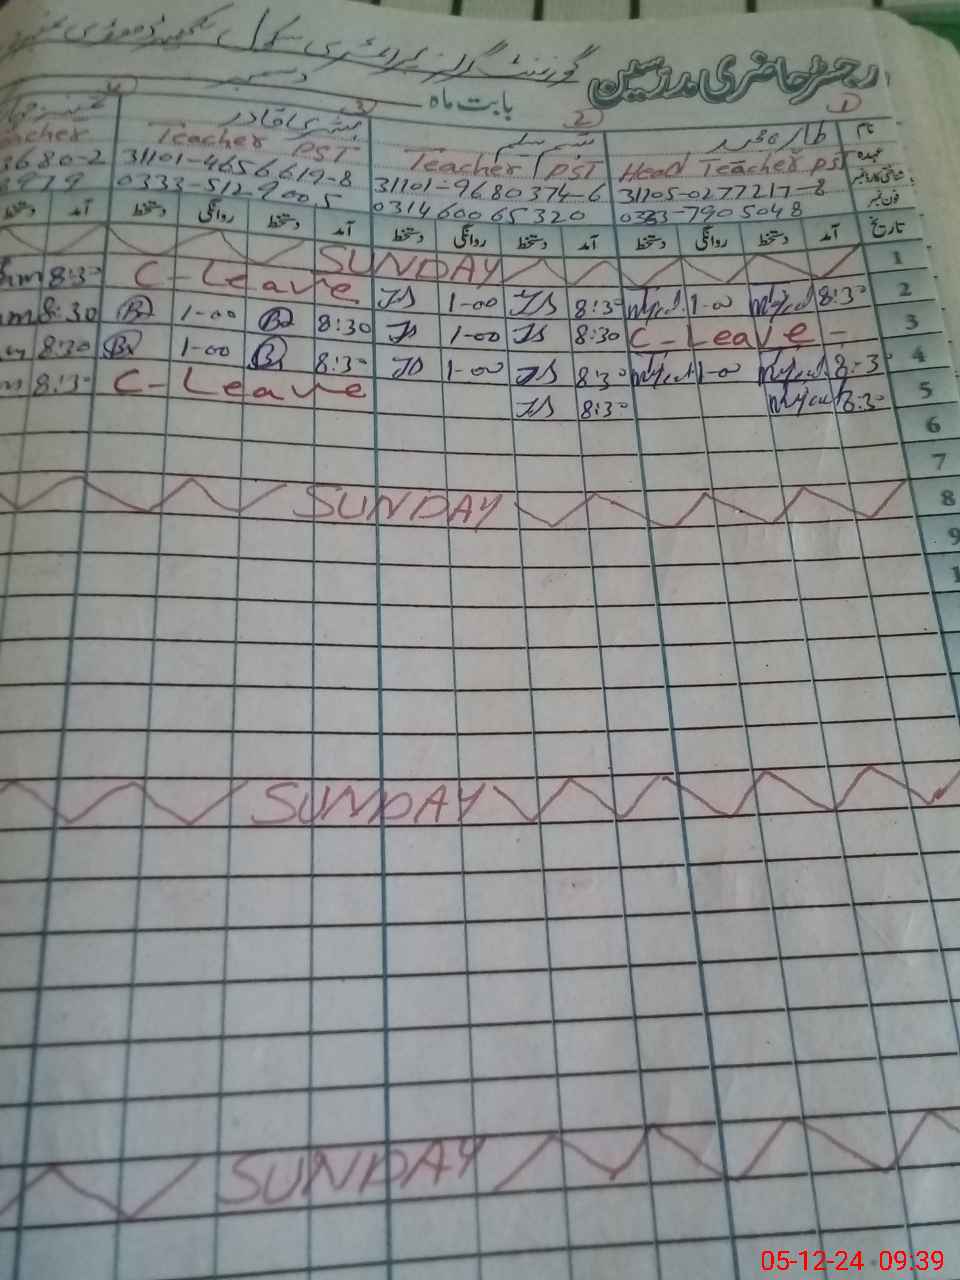 رجسٹر حاضری مدرسین گورنمنٹ گرلز پرائمری سکول
بابت ماہ دسمبر
1 2 3 4
نام
عہدہ Head Teacher PST Teacher PST Teacher PST eacher
31105-0277217-8 31101-9680374-6 31101-4656619-8 3680-2
فون نمبر 0333-7905048 031460065320 0333-5129005 8979
تاریخ آمد دستخط روانگی دستخط آمد دستخط روانگی دستخط آمد دستخط روانگی دستخط آمد دستخط
1 SUNDAY
2 8:30 1-00 8:30 JS 1-00 JS C-Leave 8:30
3 C-Leave - 8:30 JS 1-00 JS 8:30 1-00 8:30
4 8:30 1-00 8:30 JS 1-00 JS 8:30 1-00 8:30
5 8:30 8:30 JS C-Leave 8:30
6
7
8 SUNDAY
9
1
SUNDAY
SUNDAY
05-12-24 09:39